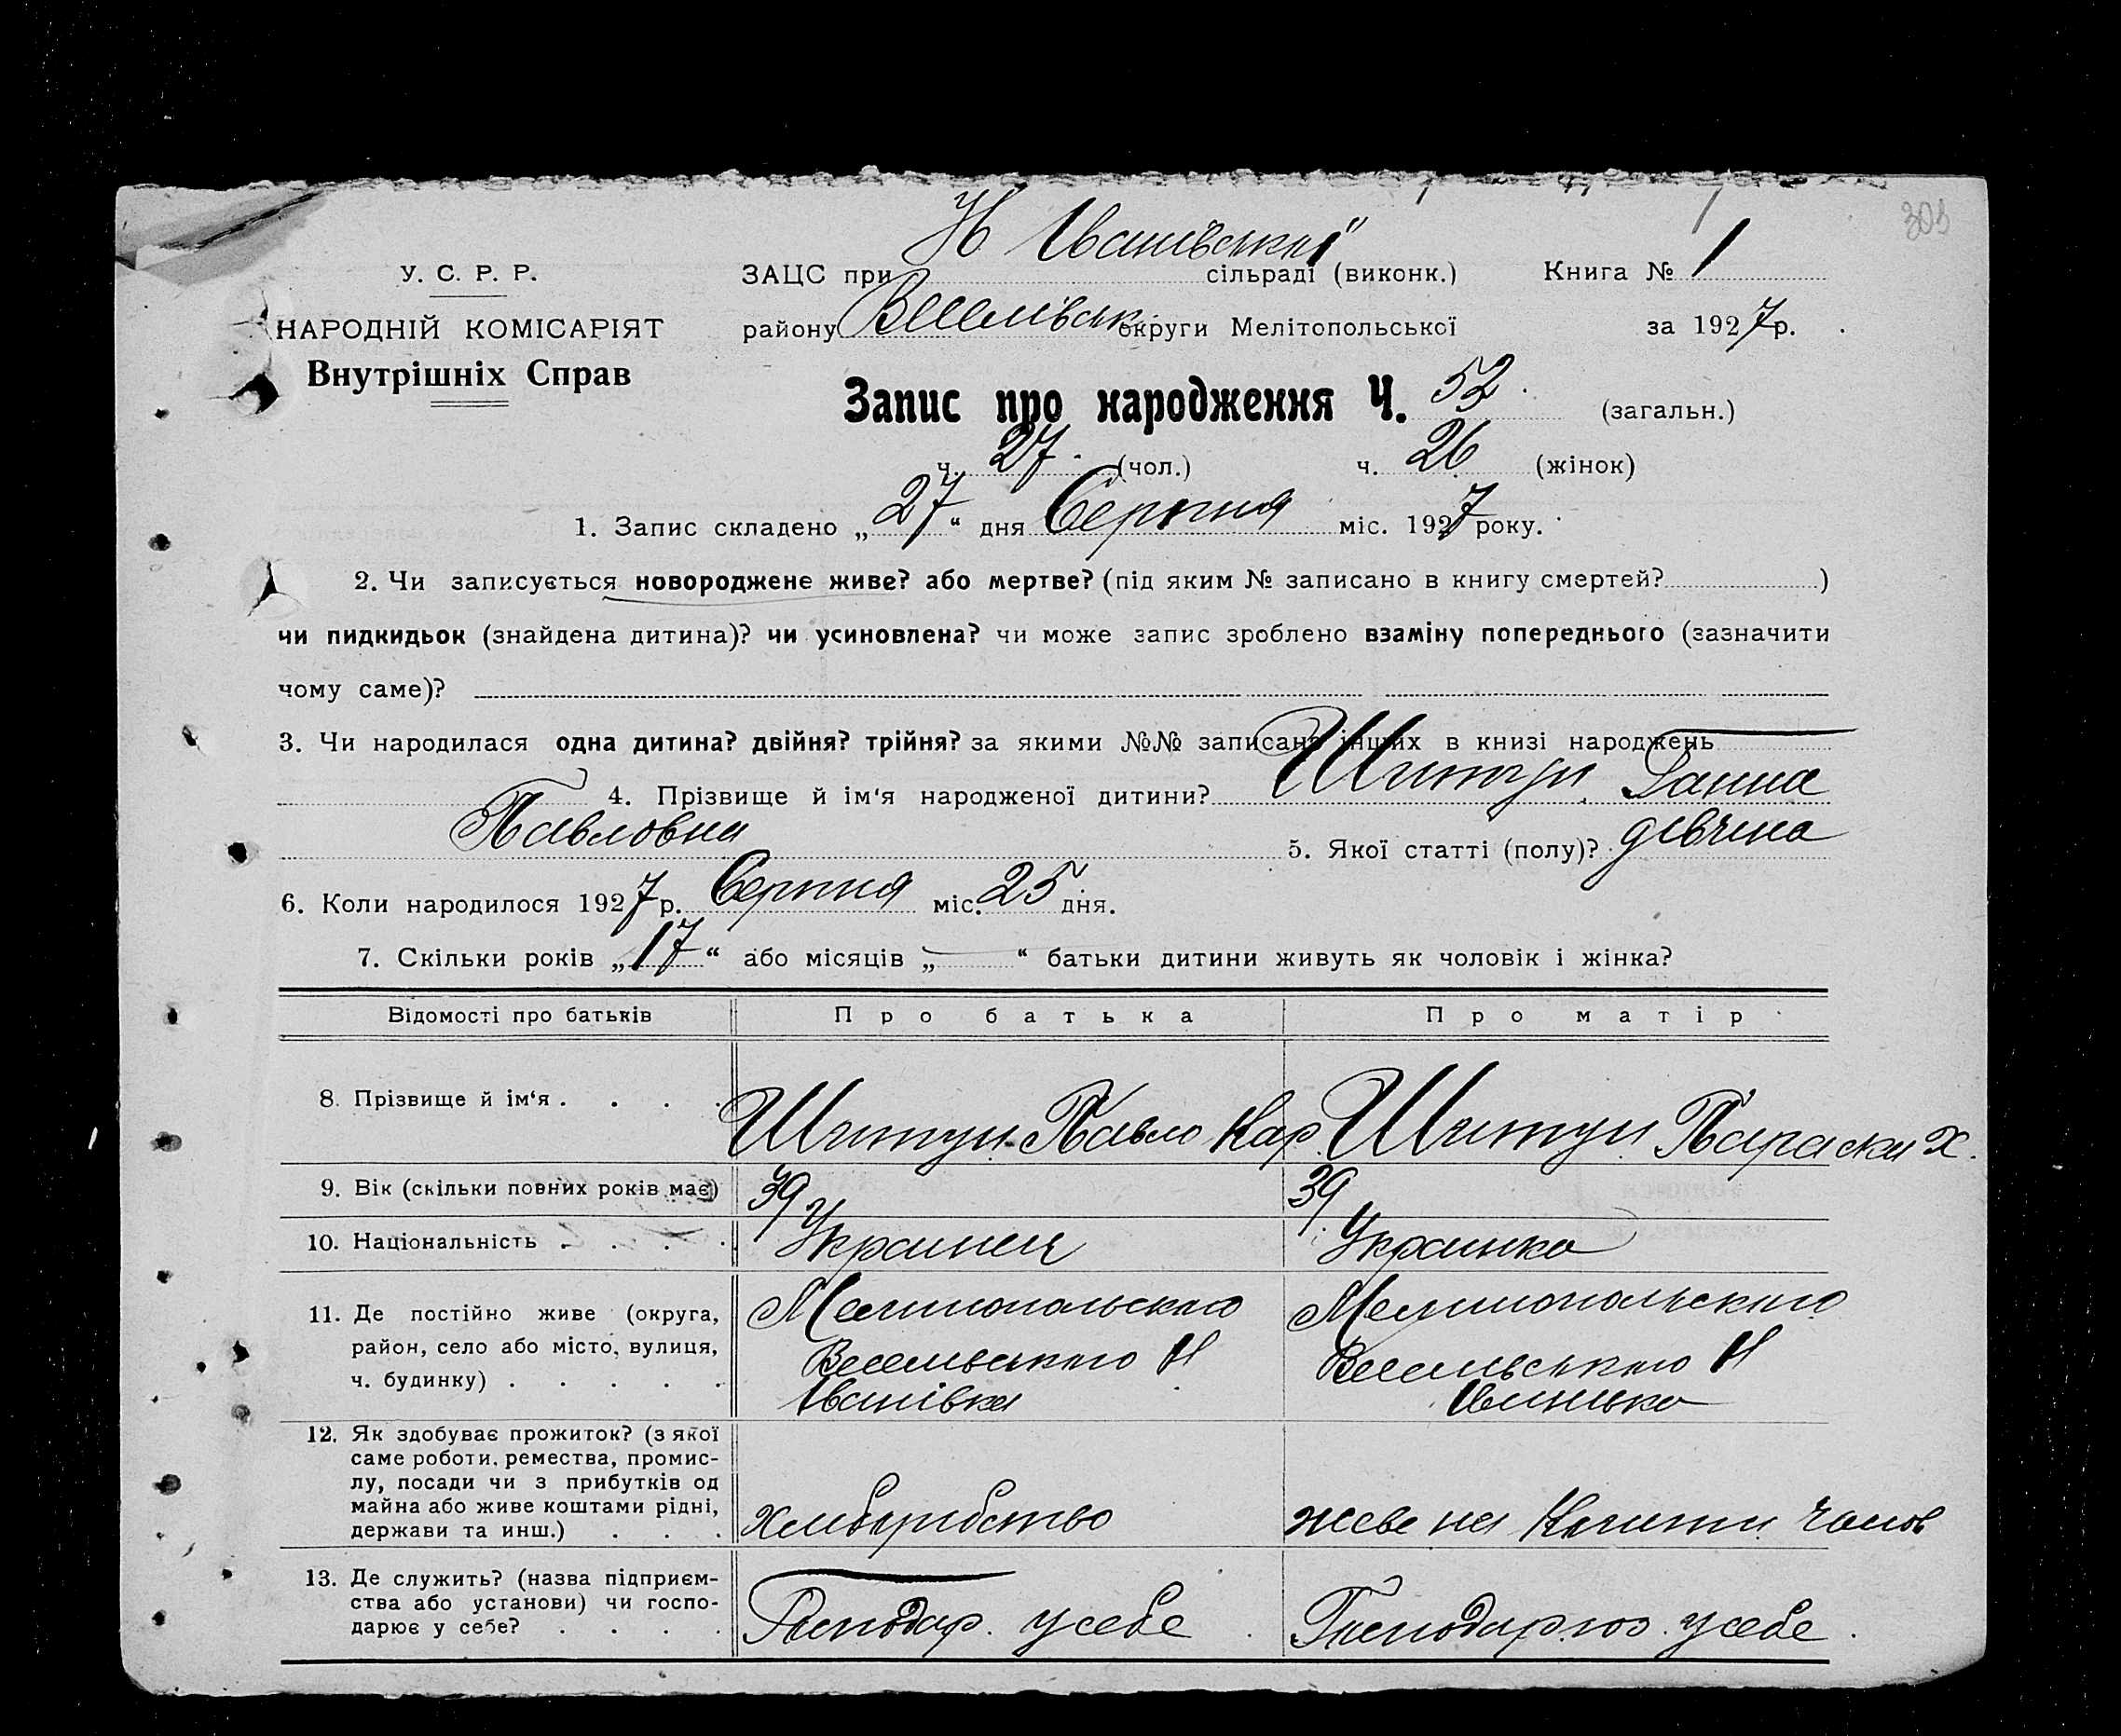 303
Н Іванівській
У. С. Р. Р. ЗАЦС при сільраді (виконк.) Книга № 1
НАРОДНІЙ КОМІСАРІЯТ району Веселівськ. округи Мелітопольської за 1927 р.
Внутрішніх Справ
Запис про народження Ч. 52. (загальн.)
ч. 27. (чол.) ч. 26 (жінок)
1. Запис складено „27“ дня Серпня міс. 1927 року.
2. Чи записується новороджене живе? або мертве? (під яким № записано в книгу смертей? )
чи пидкидьок (знайдена дитина)? чи усиновлена? чи може запис зроблено взаміну попереднього (зазначити
чому саме)?
3. Чи народилася одна дитина? двійня? трійня? за якими №№ записано інших в книзі народжень
4. Прізвище й ім'я народженої дитини? Шитун Ганна
Павловна 5. Якої статті (полу)? дівчина
6. Коли народилося 1927 р. Серпня міс. 25 дня.
7. Скільки років „17“ або місяців „—“ батьки дитини живуть як чоловік і жінка?
Відомості про батьків Про батька Про матір
8. Прізвище й ім'я . . . . Шитун Павло Кар. Шитун Параска Х.
9. Вік (скільки повних років має) 39 39
10. Національність . . . . Украинец Украинка
11. Де постійно живе (округа, Мелитопольского Мелитопольского
район, село або місто, вулиця, Веселівського Н Веселівського Н
ч. будинку) . . . . . Іванівка
12. Як здобуває прожиток? (з якої
саме роботи, ремества, промис-
лу, посади чи з прибутків од
майна або живе коштами рідні, хліборобство живе на Кошти
держави та инш.) . . .
13. Де служить? (назва підприєм-
ства або установи) чи госпо- Господар. у себе Господарює у себе.
дарює у себе? . . . .